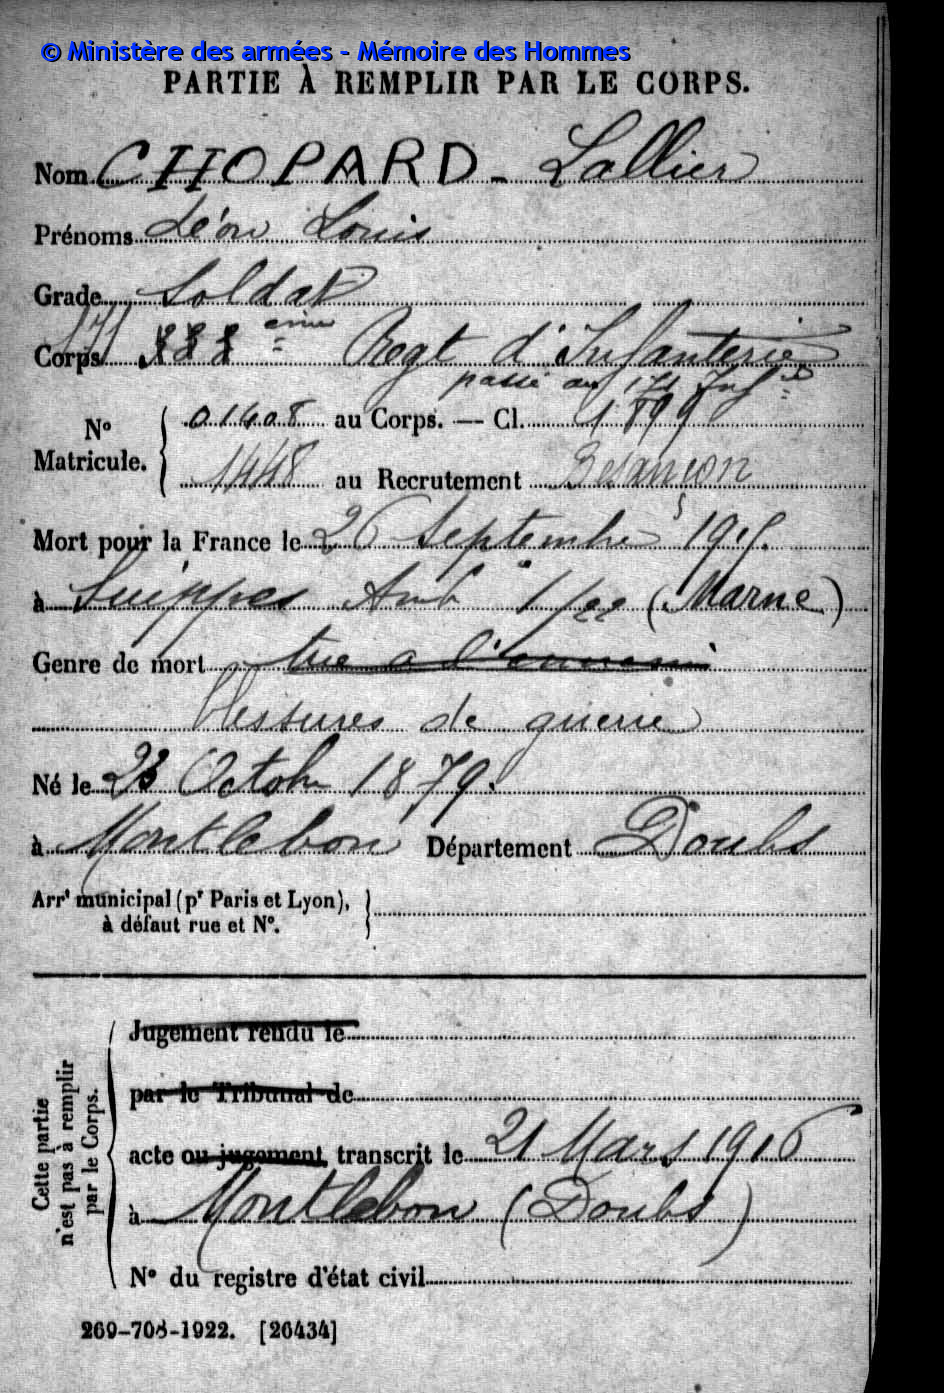 © Ministère des armées - Mémoire des Hommes
PARTIE À REMPLIR PAR LE CORPS.
Nom CHOPARD - Lallier
Prénoms Léon Louis
Grade Soldat
171
Corps ème Regt d'Infanterie
passé au 171 Inf ie
Nº Matricule. 01408 au Corps. — Cl. 1899
1448 au Recrutement Besançon
Mort pour la France le 26 Septembre 1915.
à Suippes Amb (Marne)
Genre de mort tué à l'ennemi
blessures de guerre
Né le 23 Octobre 1879.
à Montlebon Département Doubs
Arrt municipal (pr Paris et Lyon),
à défaut rue et Nº.
Cette partie
n'est pas à remplir
par le Corps.
Jugement rendu le
par le Tribunal de
acte ou jugement transcrit le 21 Mars 1916
à Montlebon (Doubs)
Nº du registre d'état civil
269-708-1922. [26434]